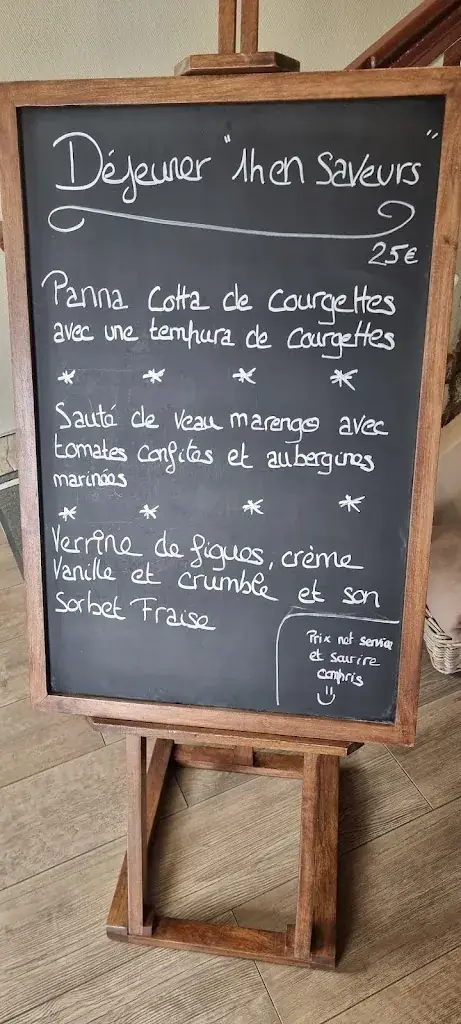 Déjeuner "1h en saveurs"
25€
Panna Cotta de courgettes
avec une tempura de courgettes
* * * *
Sauté de veau marengo avec
tomates confites et aubergines
marinées
* * * *
Verrine de figues, crème
vanille et crumble et son
sorbet Fraise
Prix net service
et sourire
compris